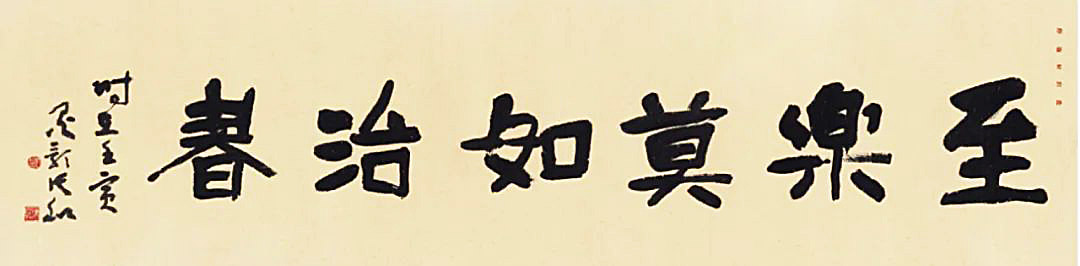 至樂莫如治書
时在壬寅